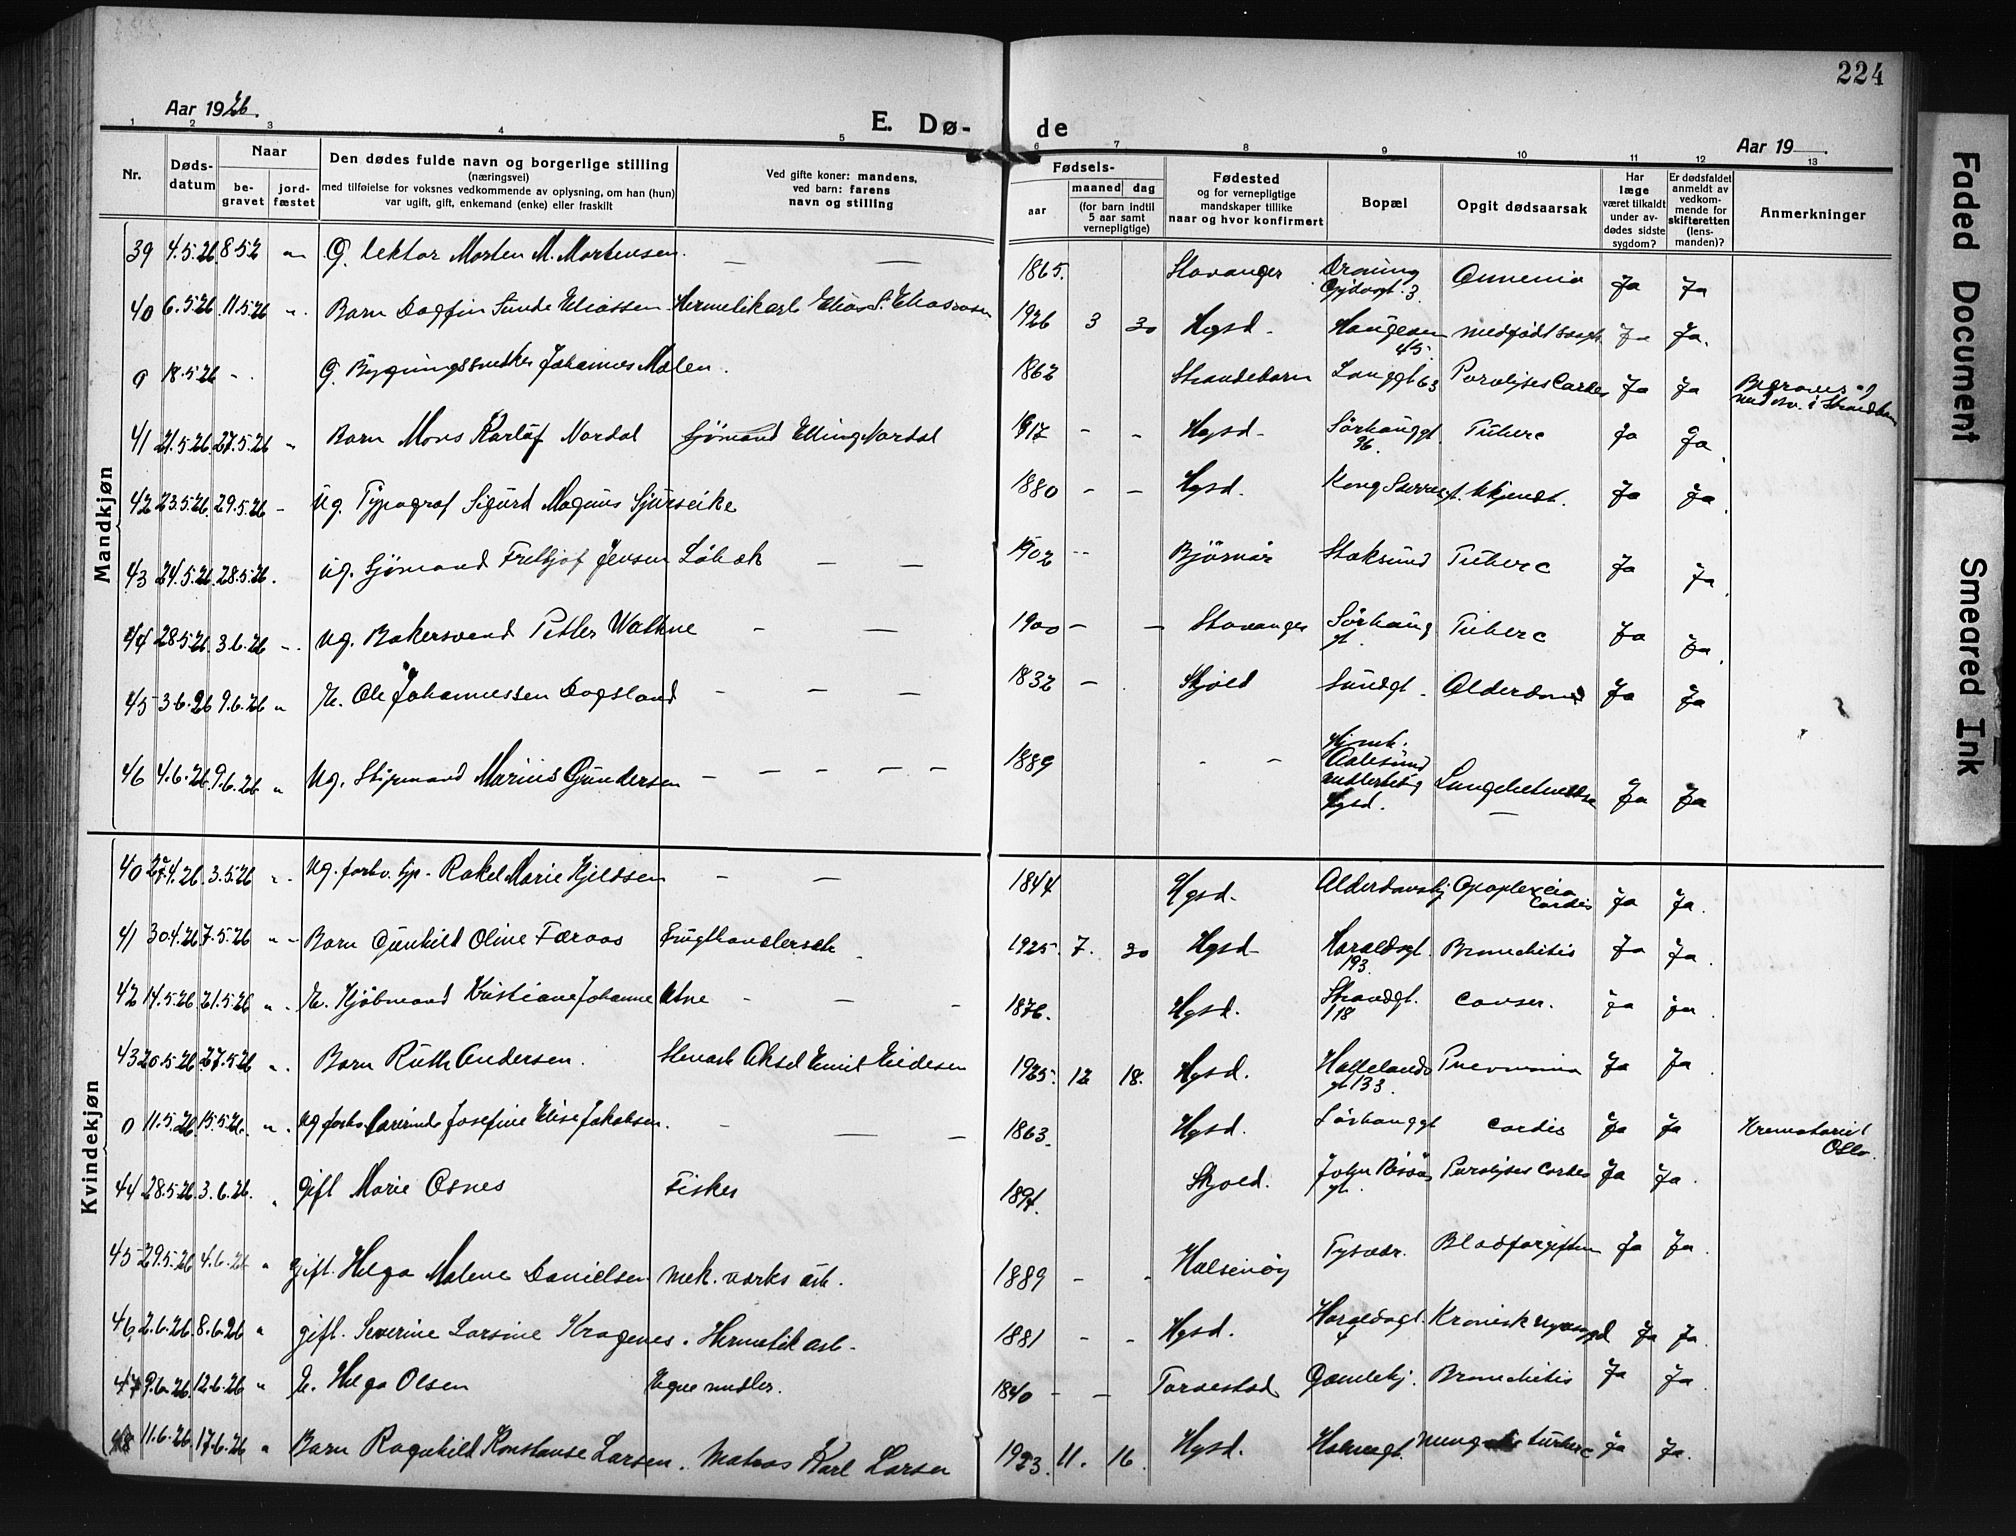 224
Aar 1926.
E. Dø-
de
Aar 19
1 2 3 4 5 6 7 8 9 10 11 12 13
Nr.
Døds-
datum
Naar
be-
gravet
jord-
fæstet
Den dødes fulde navn og borgerlige stilling
(næringsvei)
med tilføielse for voksnes vedkommende av oplysning, om han (hun)
var ugift, gift, enkemand (enke) eller fraskilt
Ved gifte koner: mandens,
ved barn: farens
navn og stilling
Fødsels-
aar
maaned
dag
(for barn indtil
5 aar samt
vernepligtige)
Fødested
og for vernepligtige
mandskaper tillike
naar og hvor konfirmert
Bopæl
Opgit dødsaarsak
Har
læge
været tilkaldt
under av-
dødes sidste
sygdom?
Er dødsfaldet
anmeldt av
vedkom-
mende for
skifteretten
(lens-
manden)?
Anmerkninger
Mandkjøn
39 4.5.26 8.5.2 " G. lektor Morten M. Mortensen. — — 1865. Stavanger Ja Ja
40 6.5.26 11.5.26 " Barn Dagfin Sunde Eliassen Hermetikarb Elias S. Eliassen 1926 3 30 Hgsd. Haugeveien 45. medfødt svagh. Ja Ja.
0 18.5.26 - G. Bygningssnedker Johannes Mælen. 1862 Strandebarm Langgt 63 Paralyses Cordis Ja Ja
41 21.5.26 27.5.26 " Barn Mons Karlöf Nordal Sjømand Elling Nordal 1917 - - Hgsd- Sørhauggt 96. Tuberc Ja Ja
42 23.5.26. 29.5.26 - Ug. Typograf Sigurd Magnus Sjurseike 1880 - - Hgsd. Kong Sverresgt. Ukjendt. Ja Ja
43 24.5.26. 28.5.26. Ug. Sjømand Fritjof Jensen Løbak — — 1902 -- Bjørnør Stoksund Tuberc Ja Ja
44 28.5.26. 3.6.26 - Ug. Bakersvend Petter Wathne - — 1900 - - Stavanger Sørhaug gt. Tuberc Ja Ja
45 3.6.26 9.6.26 " E. Ole Johannessen Dagsland - - - 1832 - Skjold Sundgt. Alderdom Ja Ja
46 4.6.26 9.6.26 " Ug. Styrmand Marius Gundersen - - - - - 1889 - - Hjmh. Aalesund midlertidig Hgsd. Lungebetændelse Ja Ja
Kvindekjøn
40 27.4.26 3.5.26 " Ug. forhv. tjp. Rakel Marie Kjeldsen - — 1844 Hgsd. Alderdomshj Apoplexcia Cordis Ja Ja.
41 30.4.26 7.5.26 " - Barn Gunhild Oline Færaas Frugthandlersek 1925. 7. 30 Hgsd- Haraldsgt. 193. Bronchitis Ja Ja.
42 14.5.26 21.5.26 " E. Kjøbmand Kristiane Johanne Utne - — - 1876. Hgsd. Strandgt. 118 Cancer. Ja Ja.
43 20.5.26. 27.5.26 " Barn Ruth Andersen. Stuert Aksel Emil Eidesen 1925. 12 18. Hgsd. gt. 133 Pnevmonia Ja Ja.
0 11.5.26 15.5.26. " Ug. Josefine Elise Jakobsen. - — - 1863. Hgsd. Sørhauggt Cordis Ja Ja Krematoriet Oslo.
44 28.5.26 3.6.26. " Gift Marie Osnes Fisker Skjold. gt. Paralyses Cordis Ja Ja.
45 29.5.26 4.6.26 " Gift. Helga Malene Danielsen mek. værks arb. 1889 - - Halsenøy Tysvær. Blodforgiften Ja Ja.
46 2.6.26 8.6.26 " gift. Severine Larsine Kragenes. Hermetik arb. 1881 - - Hgsd. Haraldsgt. Kronisk Ja Ja.
47 9.6.26 12.6.26 " E. Helga Olsen Egne midler. 1840 - - Torvestad Gamlehj. Bronchitis Ja Ja.
48 11.6.26 17.6.26 " Barn Ragnhild Konstanse Larsen. Matros Karl Larsen 1923. 11. 16. Hgsd. tuberc Ja Ja.
Faded Document
Smeared Ink